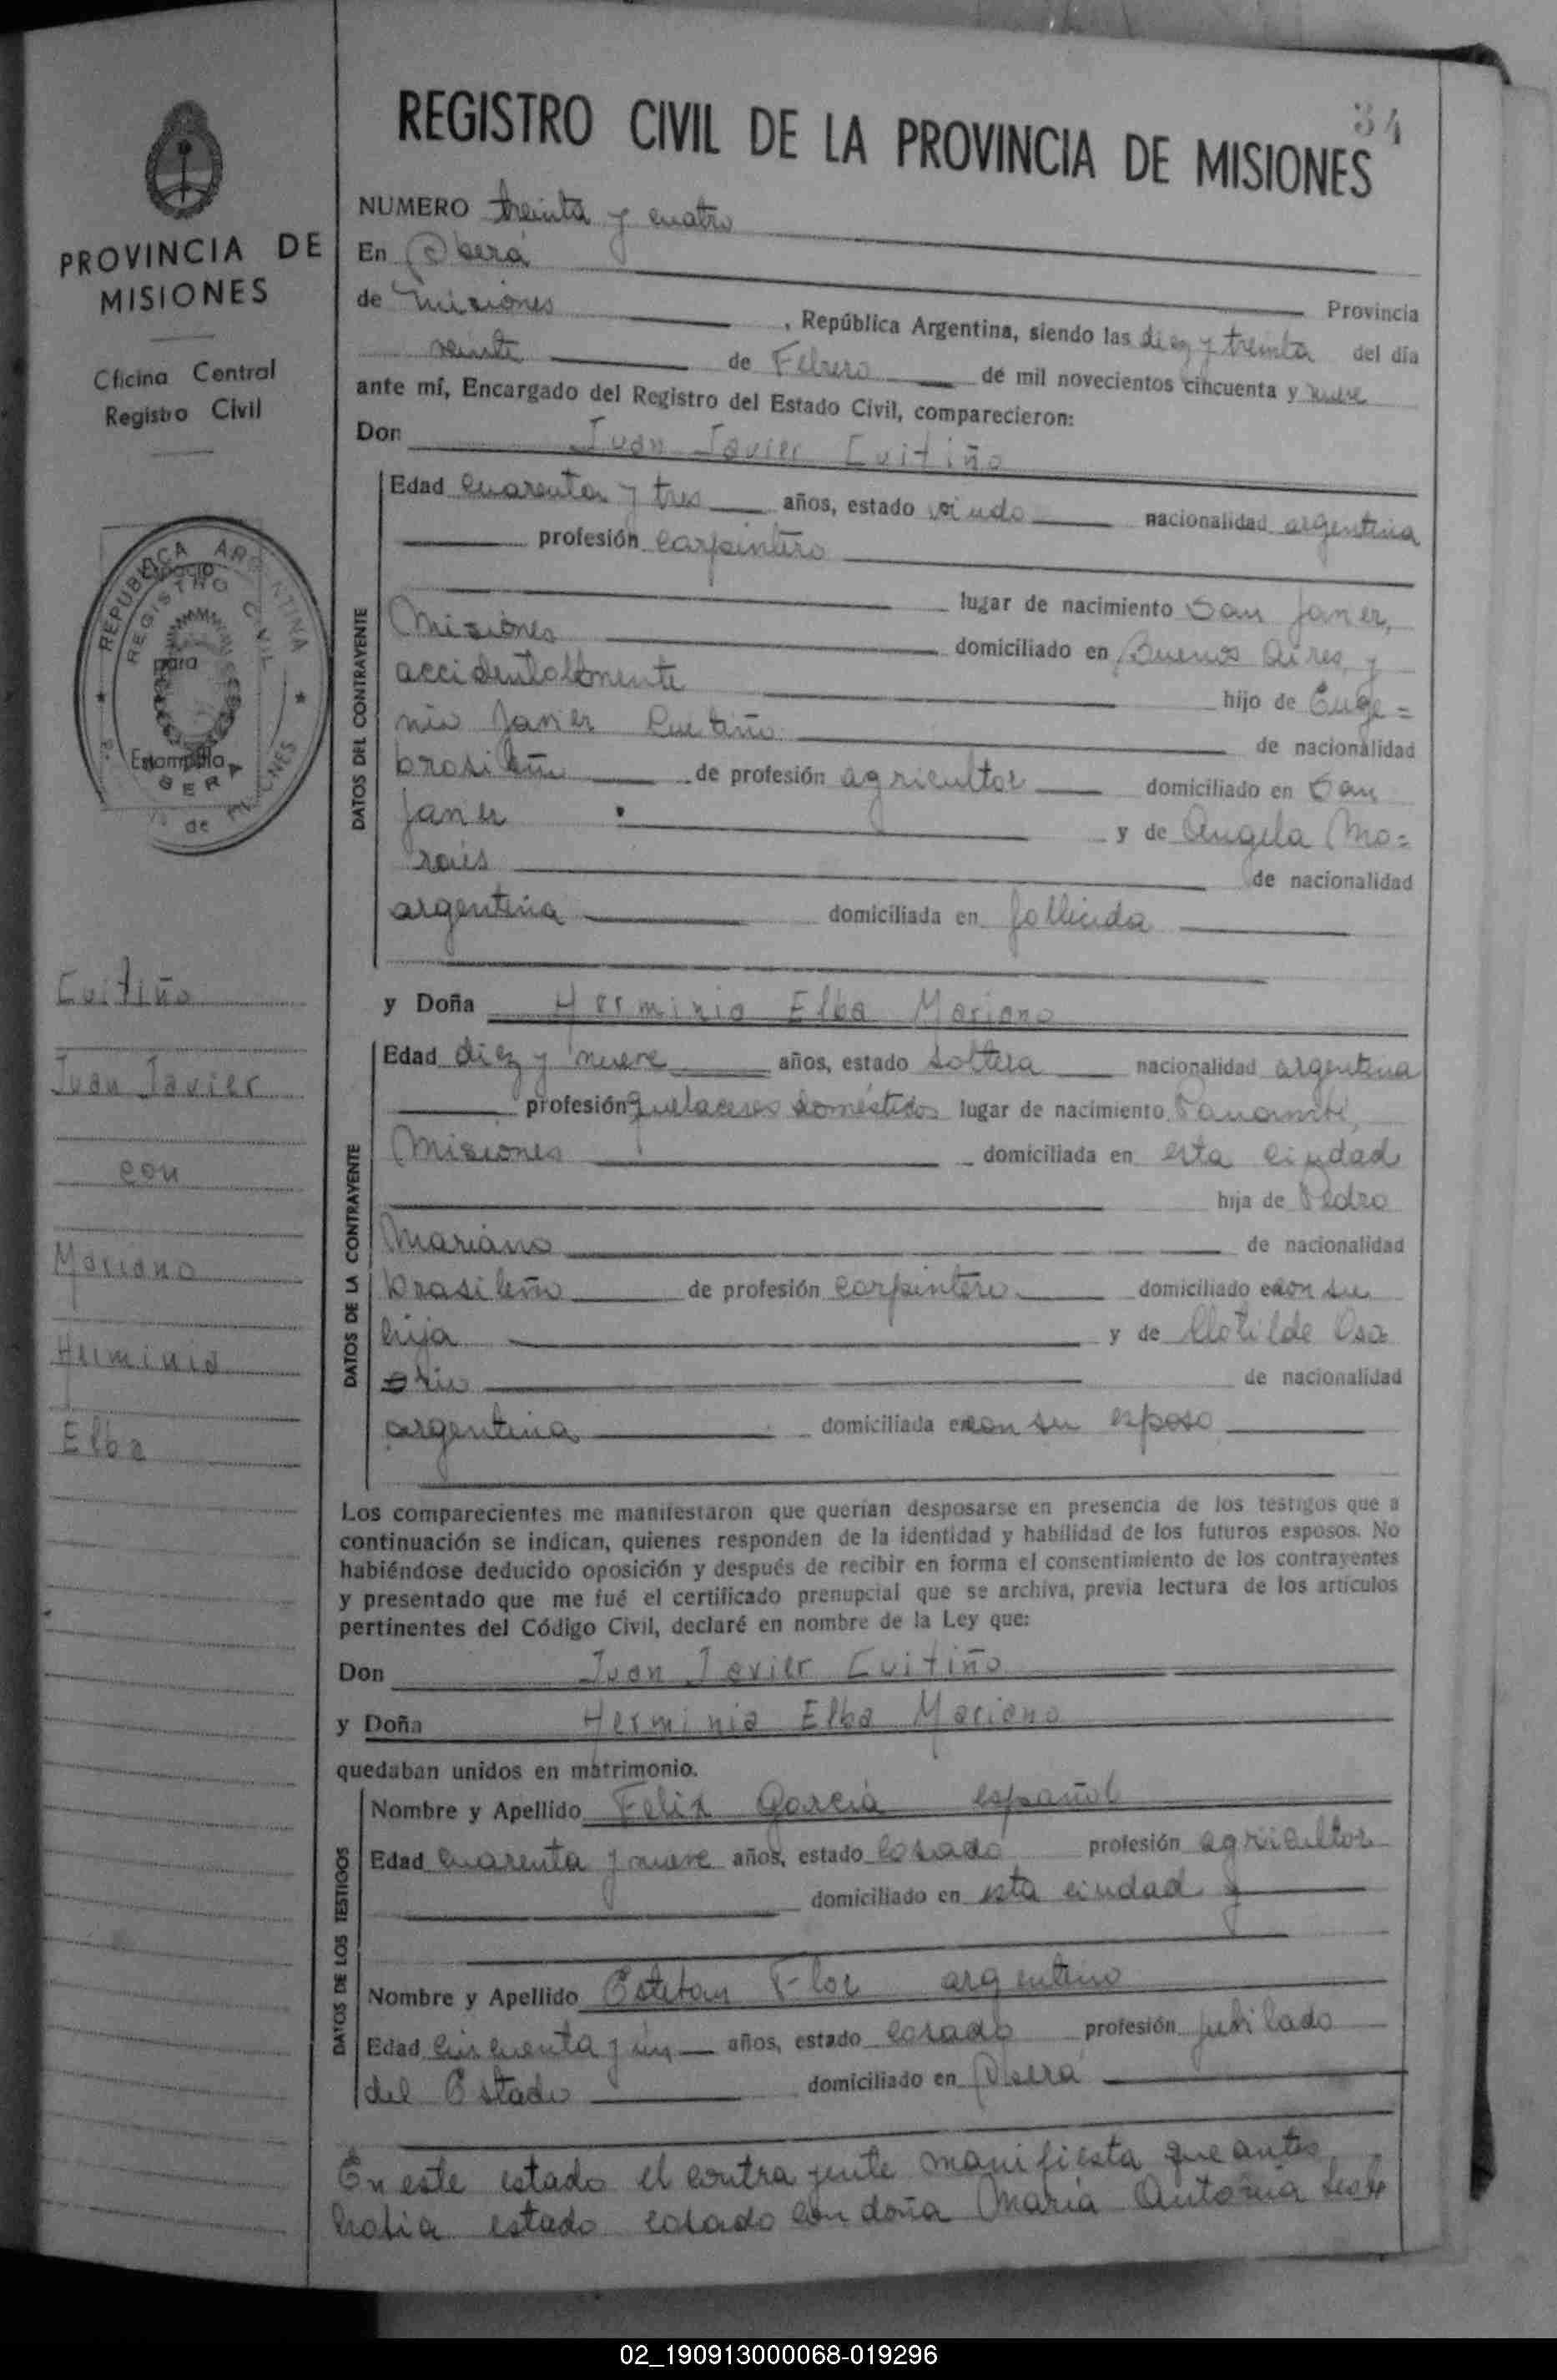 34
REGISTRO CIVIL DE LA PROVINCIA DE MISIONES
PROVINCIA DE
MISIONES
Oficina Central
Registro Civil
REPUBLICA ARGENTINA
REGISTRO CIVIL
Espacio
para
Estampilla
OBERA
de
Cuitiño
Juan Javier
con
Mariano
Herminia
Elba
NUMERO treinta y cuatro
En Oberá Provincia
de Misiones , República Argentina, siendo las diez y treinta del día
veinte de Febrero de mil novecientos cincuenta y nueve
ante mí, Encargado del Registro del Estado Civil, comparecieron:
Don Juan Javier Cuitiño
DATOS DEL CONTRAYENTE
Edad cuarenta y tres años, estado viudo nacionalidad argentina
profesión carpintero
lugar de nacimiento San Javier,
Misiones domiciliado en Buenos Aires y
accidentalmente hijo de Euge=
nio Javier Cuitiño de nacionalidad
brasileño de profesión agricultor domiciliado en San
Javier y de Angela Mo=
rais de nacionalidad
argentina domiciliada en fallecida
y Doña Herminia Elba Mariano
DATOS DE LA CONTRAYENTE
Edad diez y nueve años, estado soltera nacionalidad argentina
profesión quehaceres domésticos lugar de nacimiento Panambí,
Misiones domiciliada en esta ciudad
hija de Pedro
Mariano de nacionalidad
brasileño de profesión carpintero domiciliado en con su
hija y de Clotilde Oso
rio de nacionalidad
argentina domiciliada en con su esposo
Los comparecientes me manifestaron que querían desposarse en presencia de los testigos que a
continuación se indican, quienes responden de la identidad y habilidad de los futuros esposos. No
habiéndose deducido oposición y después de recibir en forma el consentimiento de los contrayentes
y presentado que me fué el certificado prenupcial que se archiva, previa lectura de los artículos
pertinentes del Código Civil, declaré en nombre de la Ley que:
Don Juan Javier Cuitiño
y Doña Herminia Elba Mariano
quedaban unidos en matrimonio.
DATOS DE LOS TESTIGOS
Nombre y Apellido Felix García español
Edad cuarenta y nueve años, estado casado profesión agricultor
domiciliado en esta ciudad y
Nombre y Apellido Esteban Flor argentino
Edad cincuenta y un años, estado casado profesión jubilado
del Estado domiciliado en Oberá
En este estado el contrayente manifiesta que antes
había estado casado con doña María Antonia
02_190913000068-019296